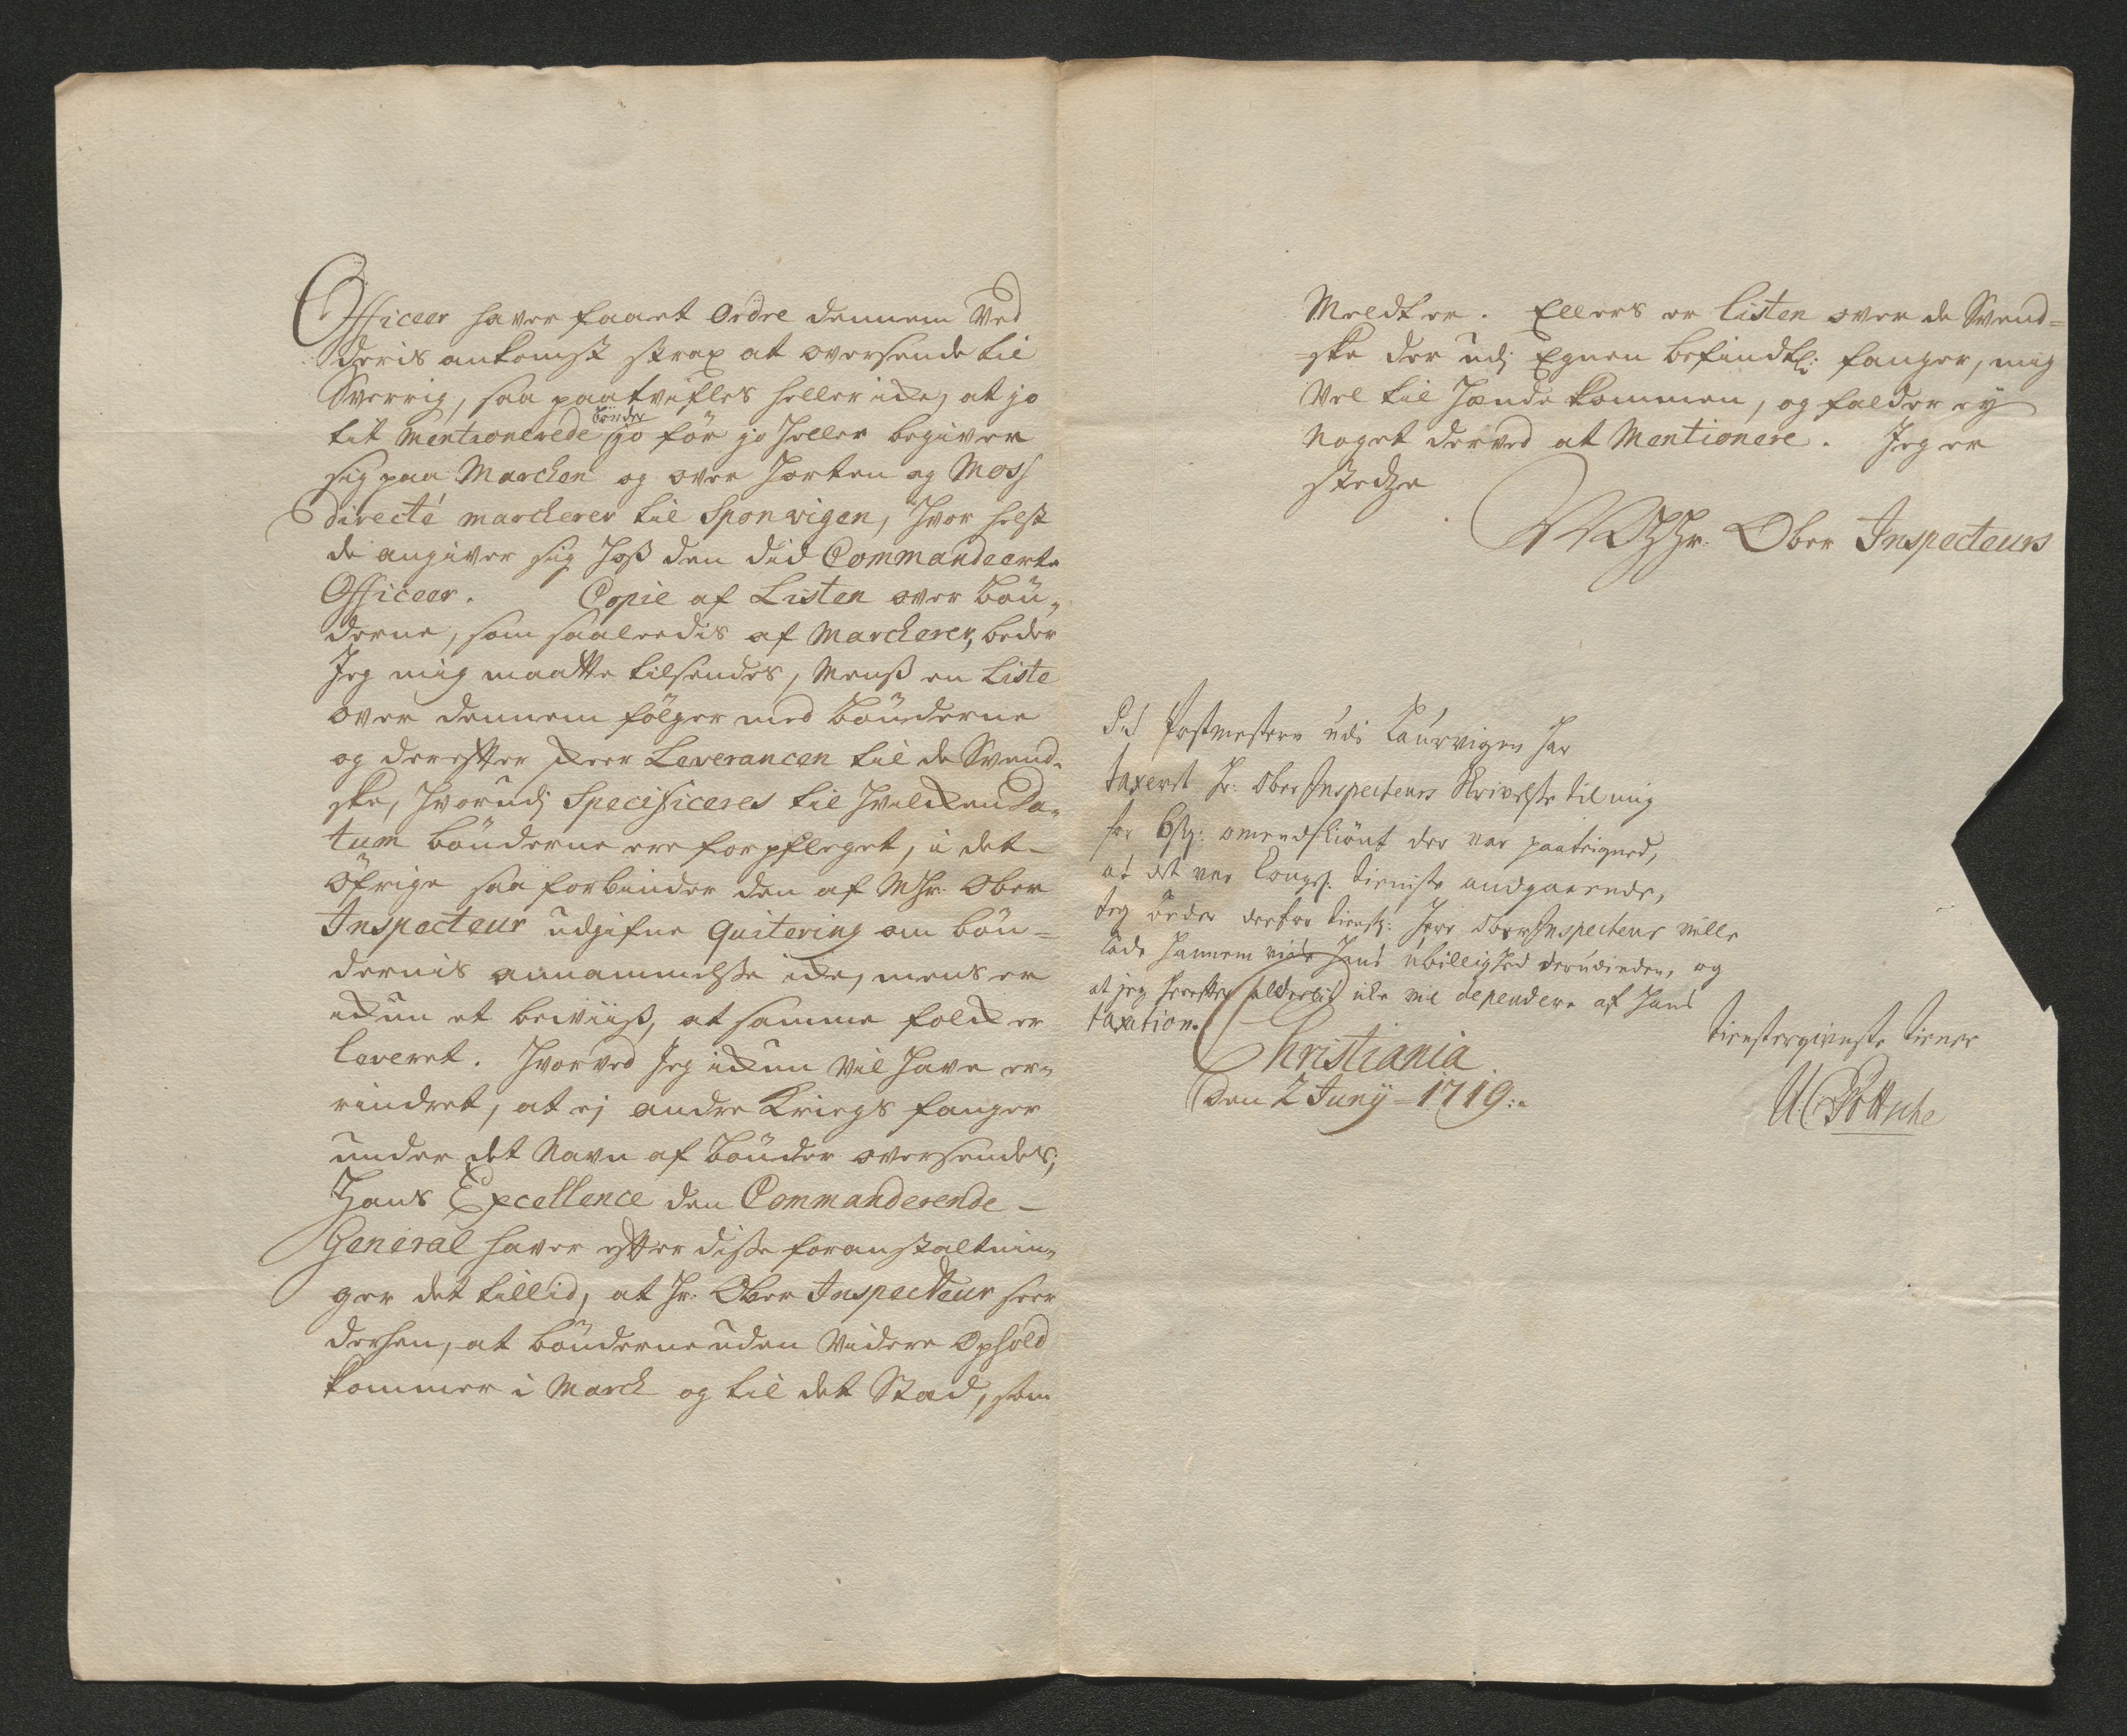 Officeer haver faaet Ordre dennem Ved
deris ankomst strax at oversende til
Sverrig, saa paatvifles heller icke, at jo
tit Mentionerede bönder jo för jo heller begiver
sig paa Marchen og over Horten og Moss
directé marcherer til Sponvigen, Hvor helst
de angiver sig Hoß den did Commandeerte
Officeer. Copie af Listen over bön„
derne, som saaleedis af Marcherer, beder
Jeg mig maatte tilsendes, Menß en Liste
over dennem fölger med bönderne
og derefter skeer Leverancen til de Svend„
ske, Hvorudj Specificeres til Hvilcken Da„
tum bönderne ere forpfleget, i det
öfrige saa forbinder den af MHr: Ober
Inspecteur udgifne Quitering om bön=
dernis annammelse icke, mens er
ickun et beviiß, at samme folck er
leveret. Hvorved Jeg ickun Vil Have er„
rindret, at ej andre Kriegs fanger
under det Navn af bönder oversendes,
Hans Excellence den Commanderende
General haver efter disse foranstaltnin„
ger det tillid, at Hr: Ober Inspecteur seer
derhen, at bönderne uden Videre Ophold
kommer i March og til det Stæd, som
Meldt er. Ellers er Listen over de Svend=
=ske der udj Egnen befindtl: fanger, mig
Vel til Hænde kommen, og falder ey
Noget derved at Mentionere. Jeg er
stedze
MHHr. Ober Inspecteurs
Postmesteren udi Laurvigen har
taxeret Hr: Ober Inspecteurs Skrivelse til mig
for 6 omendskiönt der var paateigned,
at det var Kongl: tieniste andgaaende,
Jeg beder derfor tienstl: Herr Ober Inspecteur ville
lade hannem viide Hans ubillighed derudinden, og
at jeg herefter ike vil dependere af Hans
taxation.
Christiania
den 2 Juny 1719:
tienstergivneste tiener